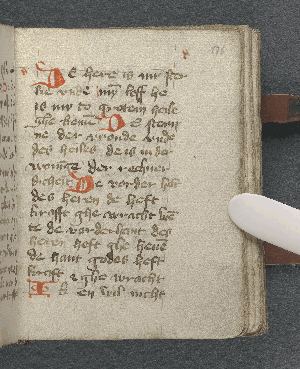 De here is my ster
ke vnde my loff he
is my to groten heile
ghe komen De stem
ne der vroude vnde
des heiles de is in der
woninge der rechuer
dichen De vorder hant
des heren de heft
kraft ghe wracht
de vorderhant des
heren heft ghe
de hant godes heft
kraft ghe wracht
Ik en wil nicht